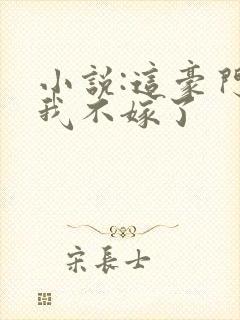 小說:這豪門
我不嫁了
宋長士